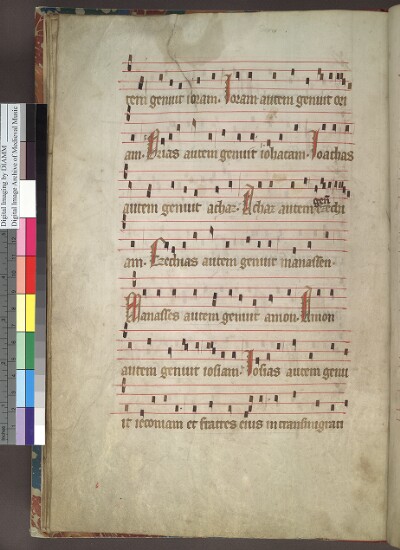 tem genuit ioram. Ioram autem genuit ozi
am. Ozias autem genuit iohatam. Ioathas
autem genuit achaz. Achaz autem gen̄ ezechi
am. Ezechias autem genuit manassen.
Manasses autem genuit amon. Amon
autem genuit iosiam. Iosias autem genu
it ieconiam et fratres eius in transmigrati
Digital Imaging by DIAMM
Digital Image Archive of Medieval Music